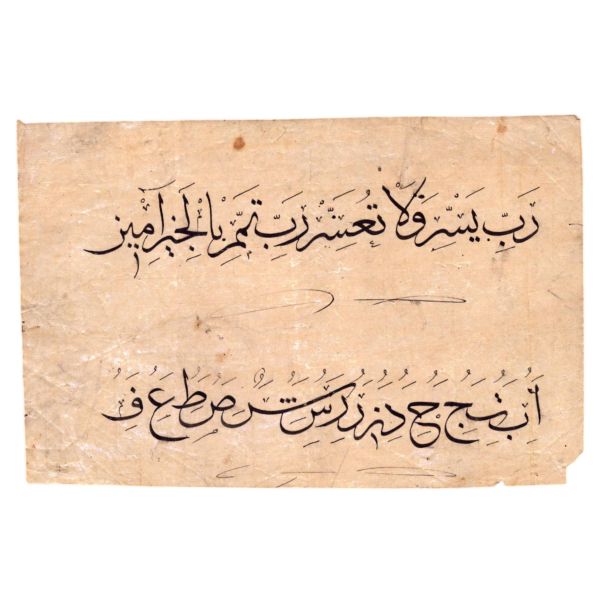 رَبِّ يَسِّرْ وَلَاْ تُعَسِّرْ رَبِّ تَمِّمْ بِالْخَيْرِ آمِين
ا ب ت ث ج ح خ د ذ ر ز س ش ص ط ع ف